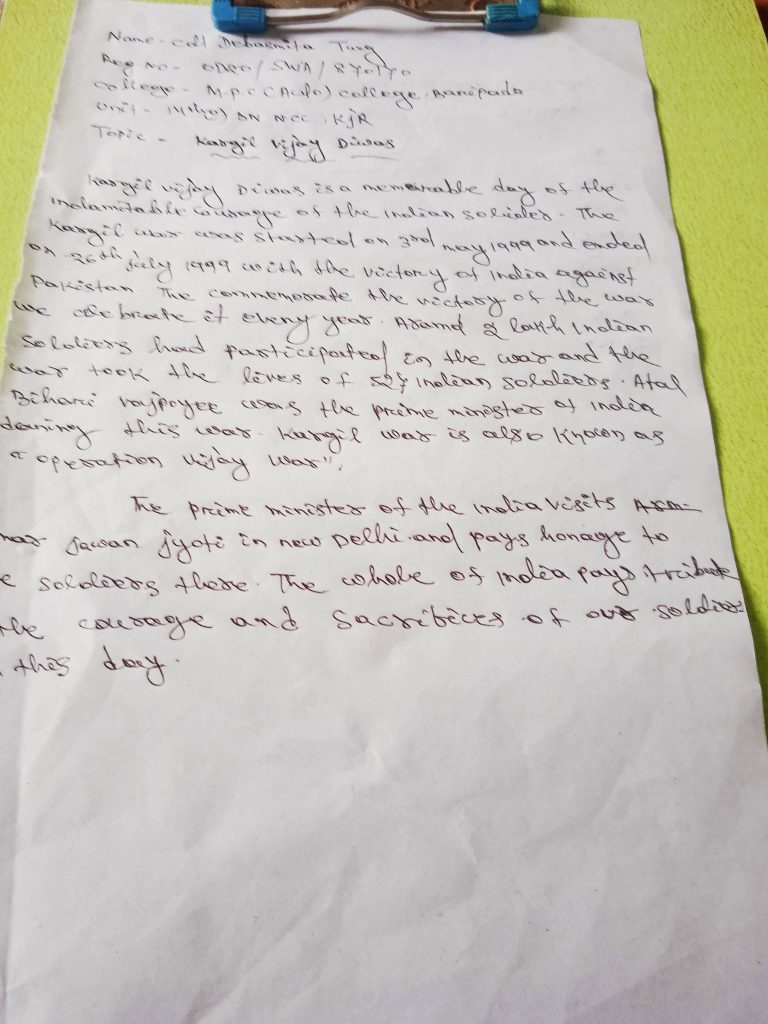 Name - Cdt Debasmita Tung
Reg No - OD20/SWA/870170
College - M.P.C (Auto) College, Baripada
Unit - BN NCC, KJR
Topic - Kargil Vijay Diwas
Kargil vijay Diwas is a memorable day of the
indamitable courage of the Indian solider. The
Kargil war was started on 3rd may 1999 and ended
on 26th july 1999 with the victory of India against
Pakistan. The commemorate the victory of the war
we celebrate it every year. Around 2 lakh Indian
Soldiers had participated in the war and the
war took the lives of 527 Indian soldiers. Atal
Bihari vajpayee was the prime minister of India
duning this war. Kargil war is also known as
"operation vijay war".
The prime minister of the india visits Am-
mar jawan jyoti in new Delhi and pays honage to
e soldiers there. The whole of india pays tribute
the courage and sacrifices of our soldier
this day.